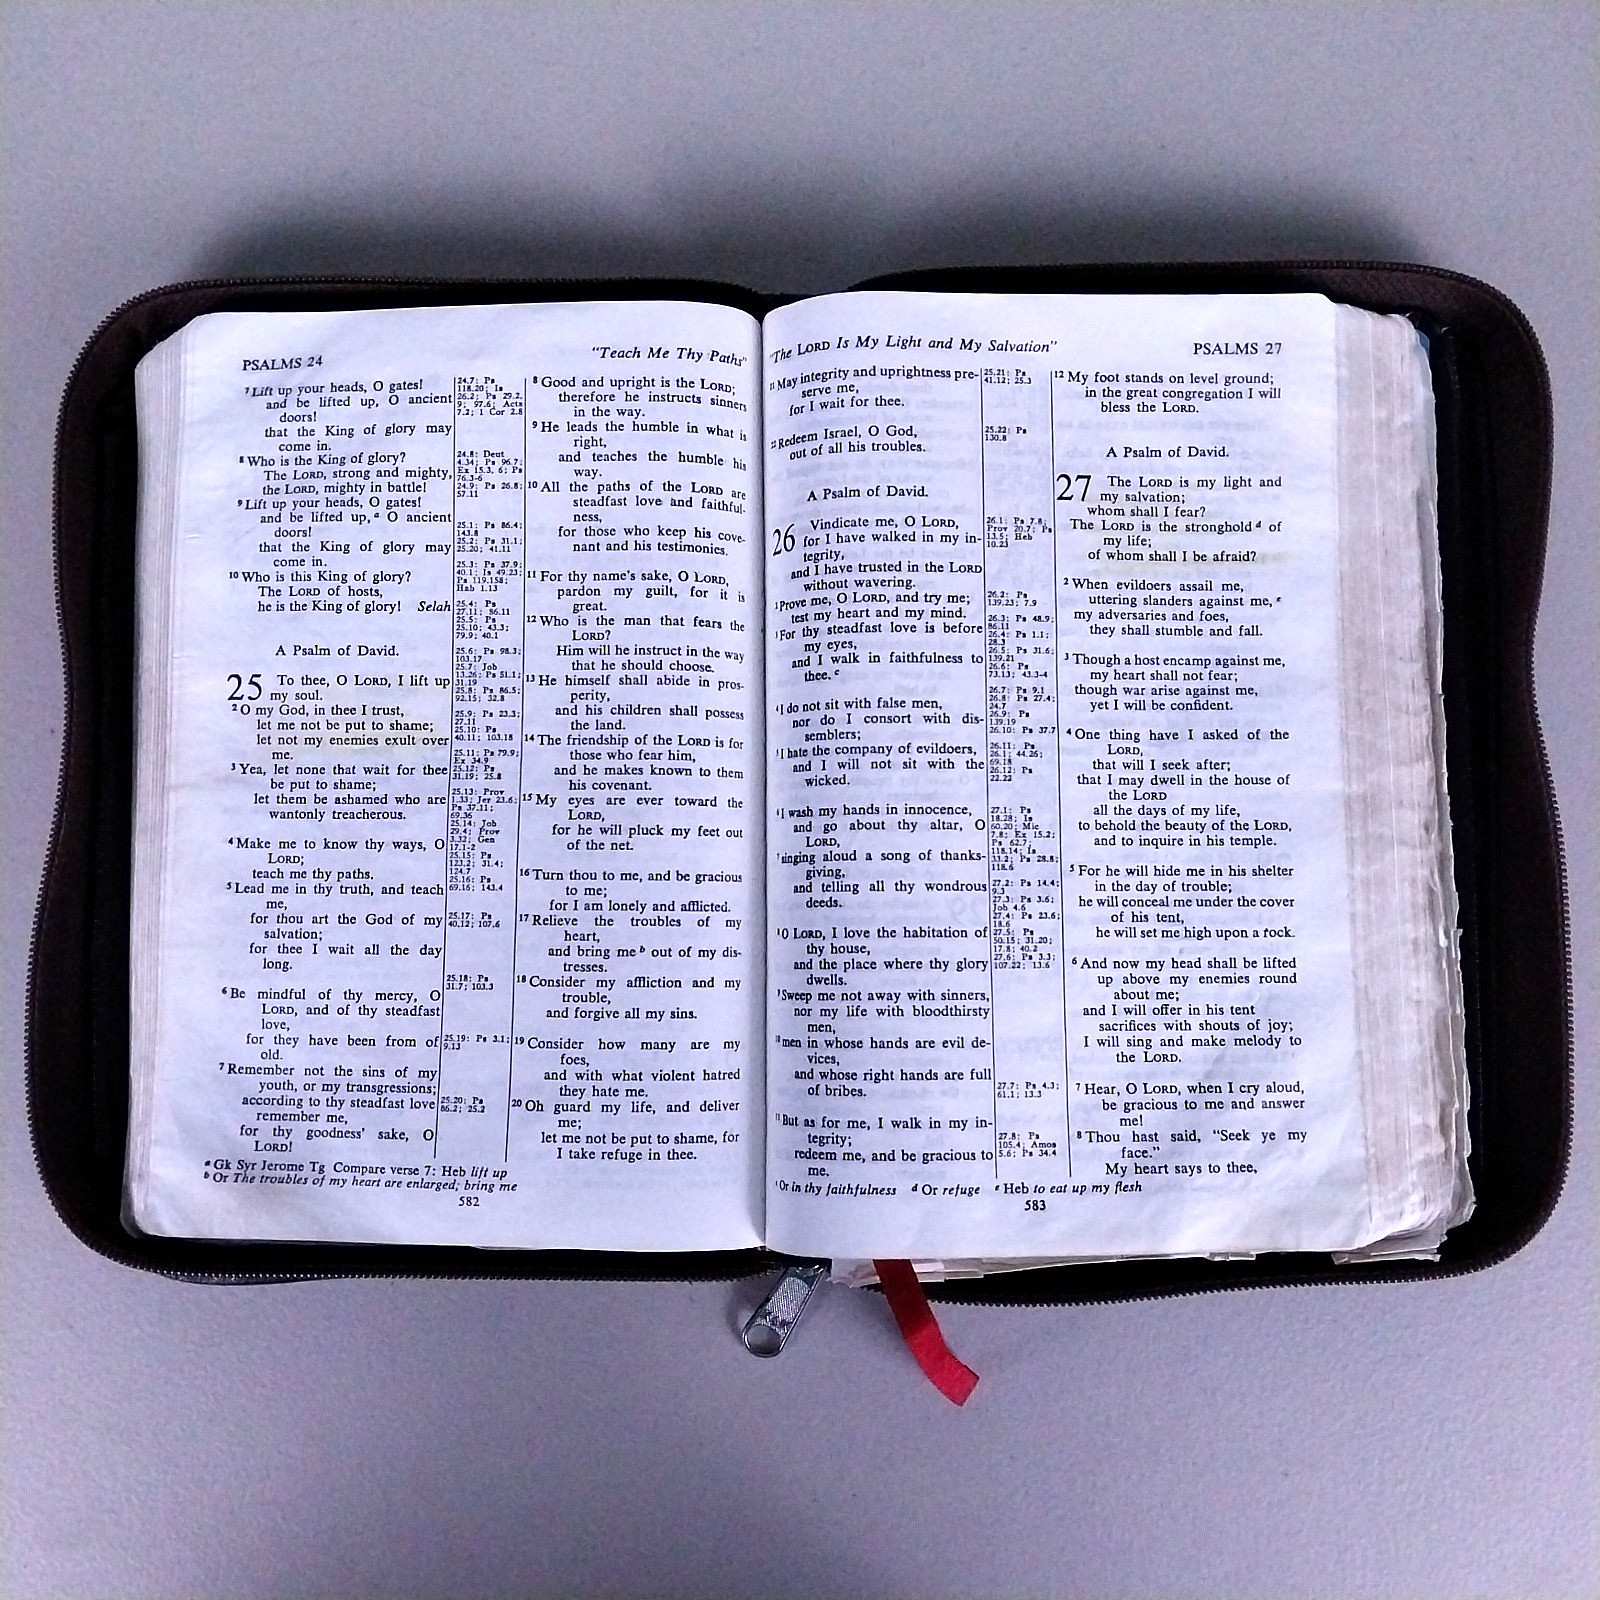 PSALMS 24
"Teach Me Thy Paths"
7 Lift up your heads, O gates!
and be lifted up, O ancient
doors!
that the King of glory may
come in.
8 Who is the King of glory?
The LORD, strong and mighty,
the LORD, mighty in battle!
9 Lift up your heads, O gates!
and be lifted up, a O ancient
doors!
that the King of glory may
come in.
10 Who is this King of glory?
The LORD of hosts,
he is the King of glory! Selah
A Psalm of David.
25 To thee, O LORD, I lift up
my soul.
2 O my God, in thee I trust,
let me not be put to shame;
let not my enemies exult over
me.
3 Yea, let none that wait for thee
be put to shame;
let them be ashamed who are
wantonly treacherous.
4 Make me to know thy ways, O
LORD;
teach me thy paths.
5 Lead me in thy truth, and teach
me,
for thou art the God of my
salvation;
for thee I wait all the day
long.
6 Be mindful of thy mercy, O
LORD, and of thy steadfast
love,
for they have been from of
old.
7 Remember not the sins of my
youth, or my transgressions;
according to thy steadfast love
remember me,
for thy goodness' sake, O
LORD!
24.7: Ps
118.20; Is
26.2; Ps 29.2,
9; 97.6; Acts
7.2; 1 Cor 2.8
24.8: Deut
4.34; Ps 96.7;
Ex 15.3, 6; Ps
76.3-6
24.9: Ps 26.8;
57.11
25.1: Ps 86.4;
143.8
25.2: Ps 31.1;
25.20; 41.11
25.3: Ps 37.9;
40.1; Is 49.23;
Ps 119.158;
Hab 1.13
25.4: Ps
27.11; 86.11
25.5: Ps
25.10; 43.3;
79.9; 40.1
25.6: Ps 98.3;
103.17
25.7: Job
13.26; Ps 51.1;
31.19
25.8: Ps 86.5;
92.15; 32.8
25.9: Ps 23.3;
27.11
25.10: Ps
40.11; 103.18
25.11: Ps 79.9;
Ex 34.9
25.12: Ps
31.19; 25.8
25.13: Prov
1.33; Jer 23.6;
Ps 37.11;
69.36
25.14: Job
29.4; Prov
3.32; Gen
17.1-2
25.15: Ps
123.2; 31.4;
124.7
25.16: Ps
69.16; 143.4
25.17: Ps
40.12; 107.6
25.18: Ps
31.7; 103.3
25.19: Ps 3.1;
9.13
25.20: Ps
86.2; 25.2
8 Good and upright is the LORD;
therefore he instructs sinners
in the way.
9 He leads the humble in what is
right,
and teaches the humble his
way.
10 All the paths of the LORD are
steadfast love and faithful-
ness,
for those who keep his cove-
nant and his testimonies.
11 For thy name's sake, O LORD,
pardon my guilt, for it is
great.
12 Who is the man that fears the
LORD?
Him will he instruct in the way
that he should choose.
13 He himself shall abide in pros-
perity,
and his children shall possess
the land.
14 The friendship of the LORD is for
those who fear him,
and he makes known to them
his covenant.
15 My eyes are ever toward the
LORD,
for he will pluck my feet out
of the net.
16 Turn thou to me, and be gracious
to me;
for I am lonely and afflicted.
17 Relieve the troubles of my
heart,
and bring me b out of my dis-
tresses.
18 Consider my affliction and my
trouble,
and forgive all my sins.
19 Consider how many are my
foes,
and with what violent hatred
they hate me.
20 Oh guard my life, and deliver
me;
let me not be put to shame, for
I take refuge in thee.
a Gk Syr Jerome Tg Compare verse 7: Heb lift up
b Or The troubles of my heart are enlarged; bring me
582
"The LORD Is My Light and My Salvation"
PSALMS 27
21 May integrity and uprightness pre-
serve me,
for I wait for thee.
22 Redeem Israel, O God,
out of all his troubles.
A Psalm of David.
26 Vindicate me, O LORD,
for I have walked in my in-
tegrity,
and I have trusted in the LORD
without wavering.
2 Prove me, O LORD, and try me;
test my heart and my mind.
3 For thy steadfast love is before
my eyes,
and I walk in faithfulness to
thee. c
4 I do not sit with false men,
nor do I consort with dis-
semblers;
5 I hate the company of evildoers,
and I will not sit with the
wicked.
6 I wash my hands in innocence,
and go about thy altar, O
LORD,
7 singing aloud a song of thanks-
giving,
and telling all thy wondrous
deeds.
8 O LORD, I love the habitation of
thy house,
and the place where thy glory
dwells.
9 Sweep me not away with sinners,
nor my life with bloodthirsty
men,
10 men in whose hands are evil de-
vices,
and whose right hands are full
of bribes.
11 But as for me, I walk in my in-
tegrity;
redeem me, and be gracious to
me.
25.21: Ps
41.12; 25.3
25.22: Ps
130.8
26.1: Ps 7.8;
Prov 20.7; Ps
13.5; Heb
10.23
26.2: Ps
139.23; 7.9
26.3: Ps 48.9;
86.11
26.4: Ps 1.1;
28.3
26.5: Ps 31.6;
139.21
26.6: Ps
73.13; 43.3-4
26.7: Ps 9.1
26.8: Ps 27.4;
24.7
26.9: Ps
139.19
26.10: Ps 37.7
26.11: Ps
26.1; 44.26;
69.18
26.12: Ps
22.22
27.1: Ps
18.28; Is
60.20; Mic
7.8; Ex 15.2;
Ps 62.7;
118.14; Is
33.2; Ps 28.8;
118.6
27.2: Ps 14.4;
9.3
27.3: Ps 3.6;
Job 4.6
27.4: Ps 23.6;
18.6
27.5: Ps
50.15; 31.20;
17.8; 40.2
27.6: Ps 3.3;
107.22; 13.6
27.7: Ps 4.3;
61.1; 13.3
27.8: Ps
105.4; Amos
5.6; Ps 34.4
12 My foot stands on level ground;
in the great congregation I will
bless the LORD.
A Psalm of David.
27 The LORD is my light and
my salvation;
whom shall I fear?
The LORD is the stronghold d of
my life;
of whom shall I be afraid?
2 When evildoers assail me,
uttering slanders against me, e
my adversaries and foes,
they shall stumble and fall.
3 Though a host encamp against me,
my heart shall not fear;
though war arise against me,
yet I will be confident.
4 One thing have I asked of the
LORD,
that will I seek after;
that I may dwell in the house of
the LORD
all the days of my life,
to behold the beauty of the LORD,
and to inquire in his temple.
5 For he will hide me in his shelter
in the day of trouble;
he will conceal me under the cover
of his tent,
he will set me high upon a rock.
6 And now my head shall be lifted
up above my enemies round
about me;
and I will offer in his tent
sacrifices with shouts of joy;
I will sing and make melody to
the LORD.
7 Hear, O LORD, when I cry aloud,
be gracious to me and answer
me!
8 Thou hast said, "Seek ye my
face."
My heart says to thee,
c Or in thy faithfulness d Or refuge e Heb to eat up my flesh
583